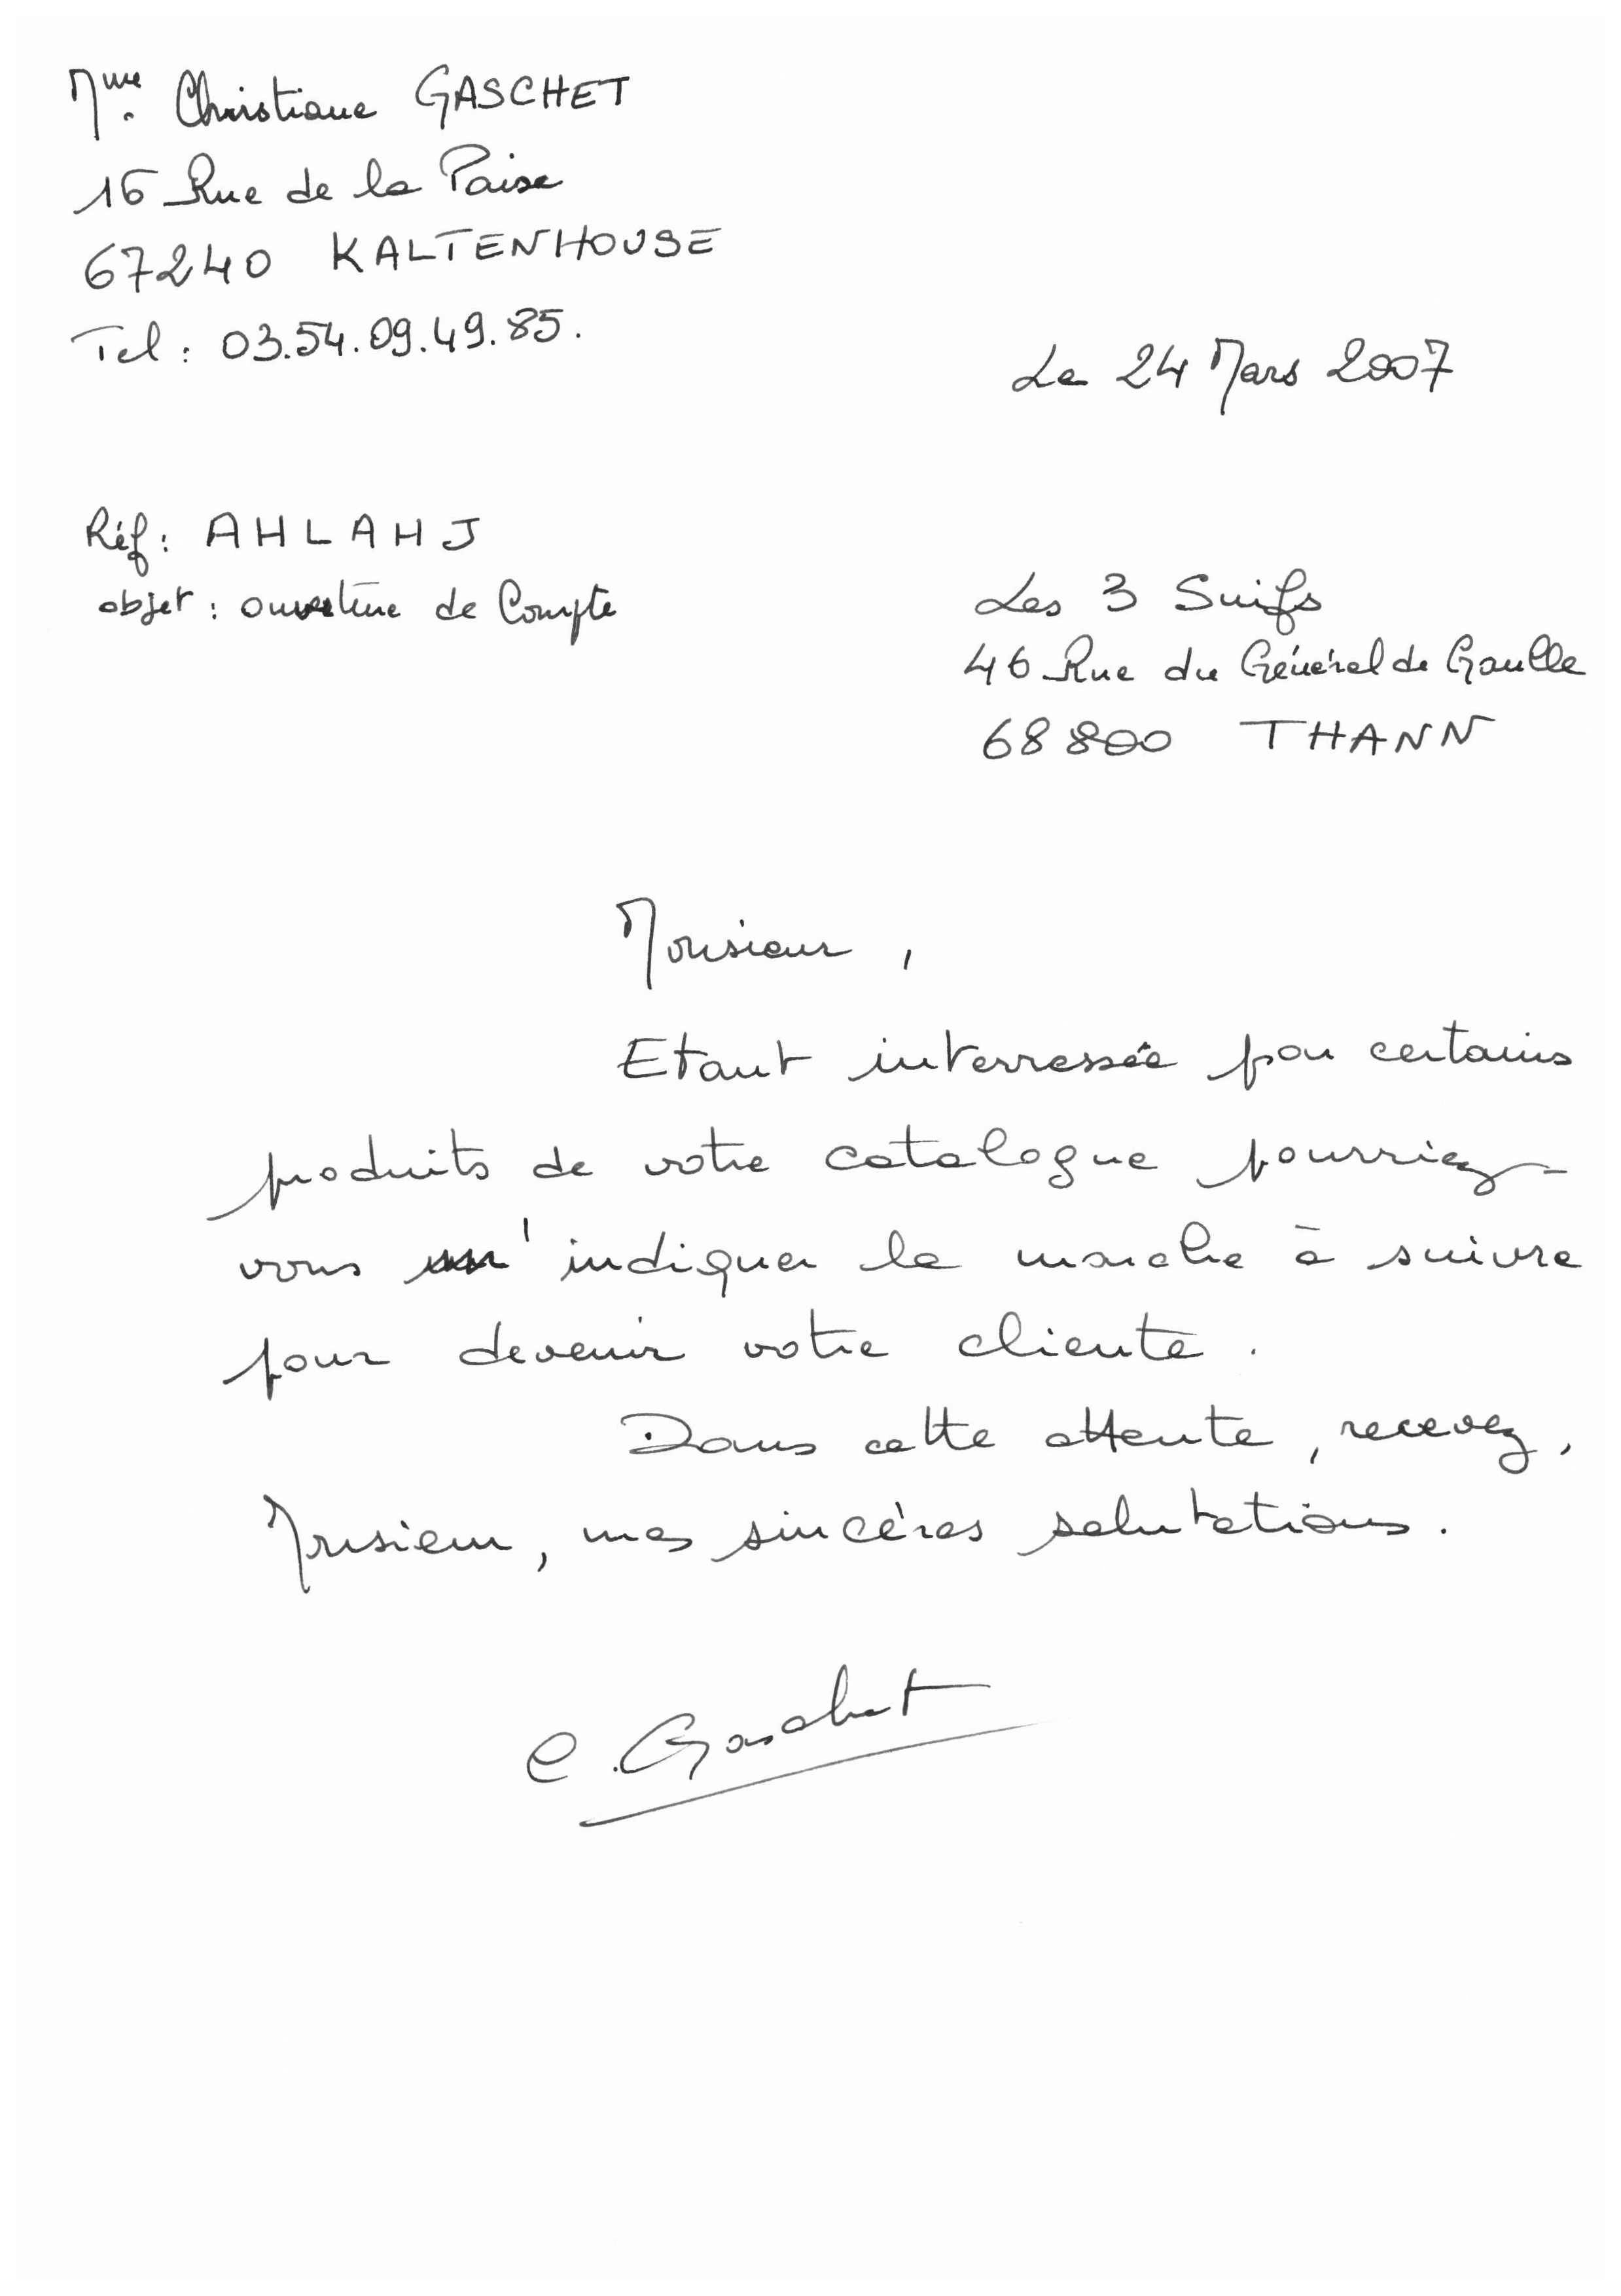 Mme. Christiane GASCHET
16 Rue de la Paix
67240 KALTENHOUSE
Tel : 03.54.09.49.85.
Le 24 Mars 2007
Réf : AHLAHJ
objet : ouverture de Compte
Les 3 Suifs
46 Rue du Général de Gaulle
68800 THANN
Monsieur ,
Etant interressée par certains
produits de votre catalogue pourriez-
vous m'indiquer la marche à suivre
pour devenir votre cliente .
Dans cette attente , recevez ,
Monsieur, mes sincères salutations .
C. Gaschet